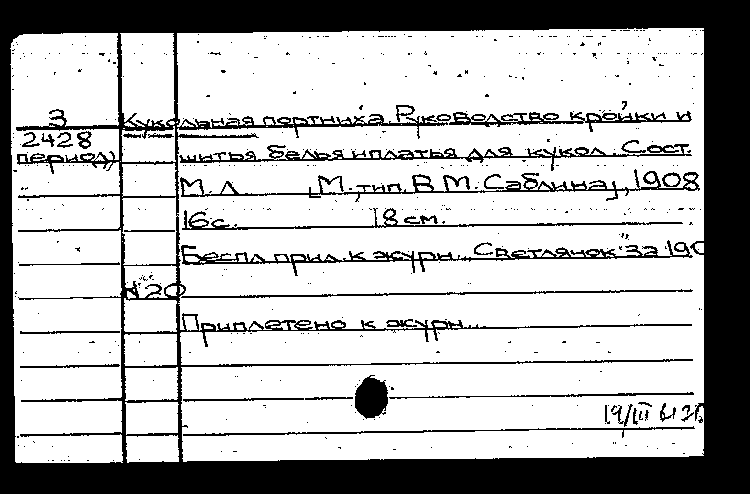 З
Кукольная портниха. Руководство кройки и
2428
период)
шитья белья и платья для кукол. Сост.
М. Л [М., тип. В. М. Саблина], 1908
16 с. 18 см.
Беспл. прил. к журн. „Светлячок" за 190
№ 20
Приплетено к журн...
19/III